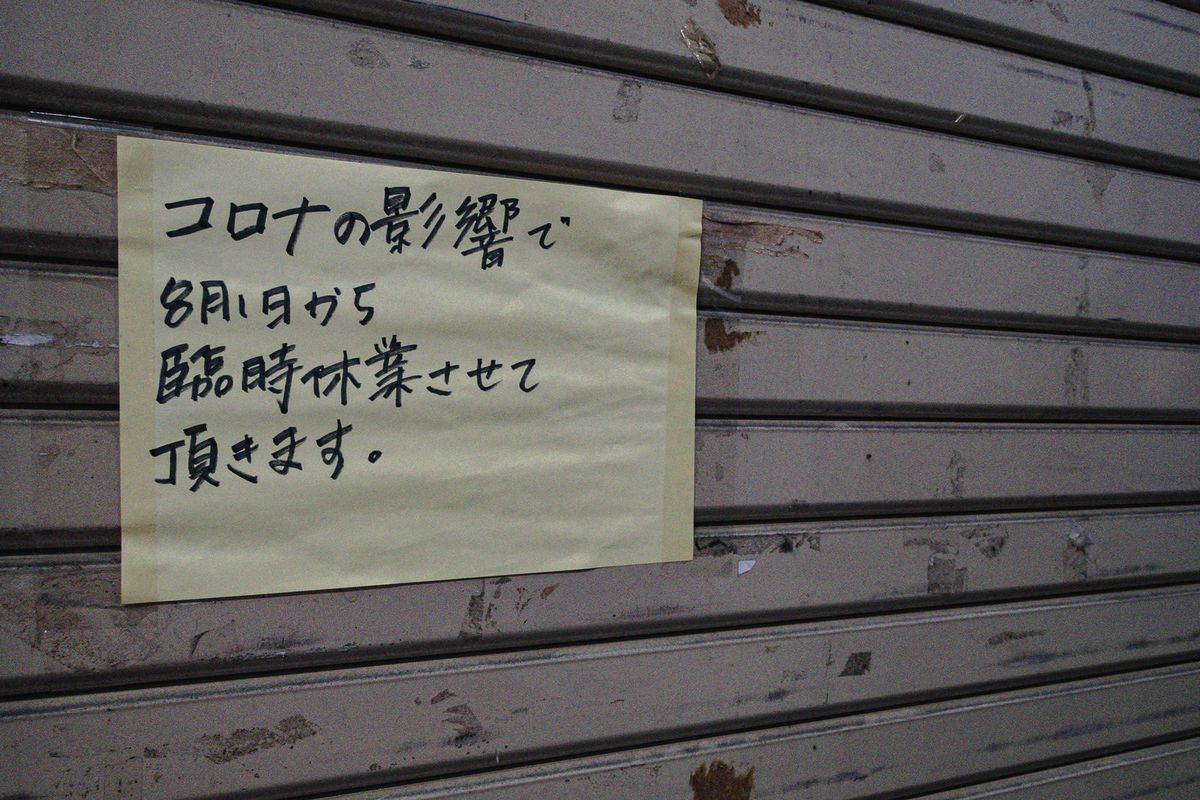 コロナの影響で
8月1日から
臨時休業させて
頂きます。